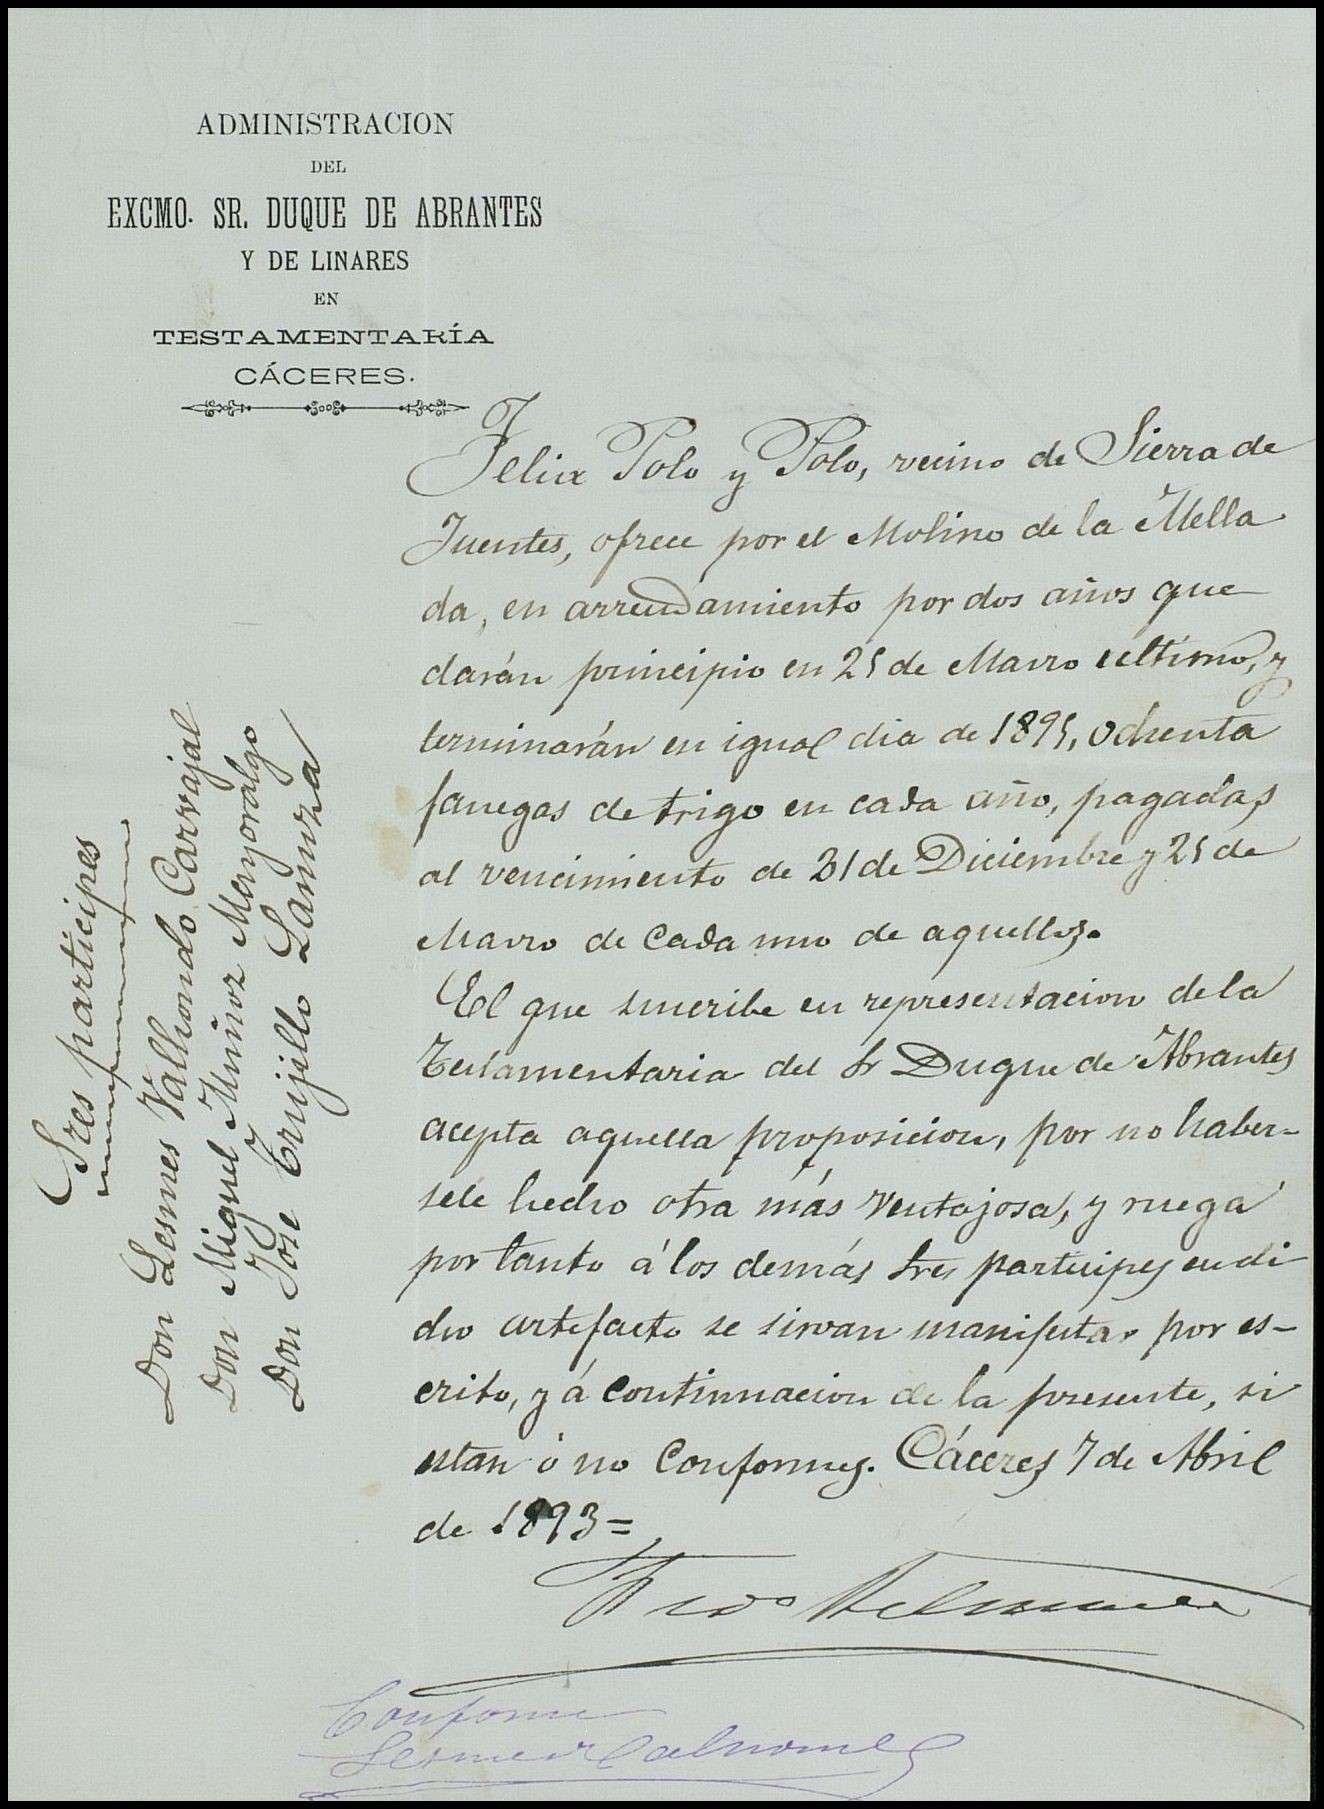 ADMINISTRACION
DEL
EXCMO. SR. DUQUE DE ABRANTES
Y DE LINARES
EN
TESTAMENTARÍA
CÁCERES.
Felix Polo y Polo, vecino de Sierra de
Fuentes, ofrece por el Molino de la Mella
da, en arrendamiento por dos años que
darán principio en 25 de Marzo último, y
terminarán en igual dia de 1895, ochenta
fanegas de trigo en cada año, pagadas
al vencimiento de 31 de Diciembre y 25 de
Marzo de cada uno de aquellos.
El que suscribe en representacion de la
Testamentaria del Sr Duque de Abrantes
acepta aquella proposicion, por no haber-
sele hecho otra más ventajosa, y ruega
por tanto á los demás Sres participes en di
cho artefacto se sirvan manifestar por es-
crito, y á continuacion de la presente, si
estan ó no conformes. Cáceres 7 de Abril
de 1893=
Conforme
Sres participes
Don Lesmes Valhondo Carvajal
Don Miguel Muñoz Mayoralgo
Don José Trujillo Lanuza